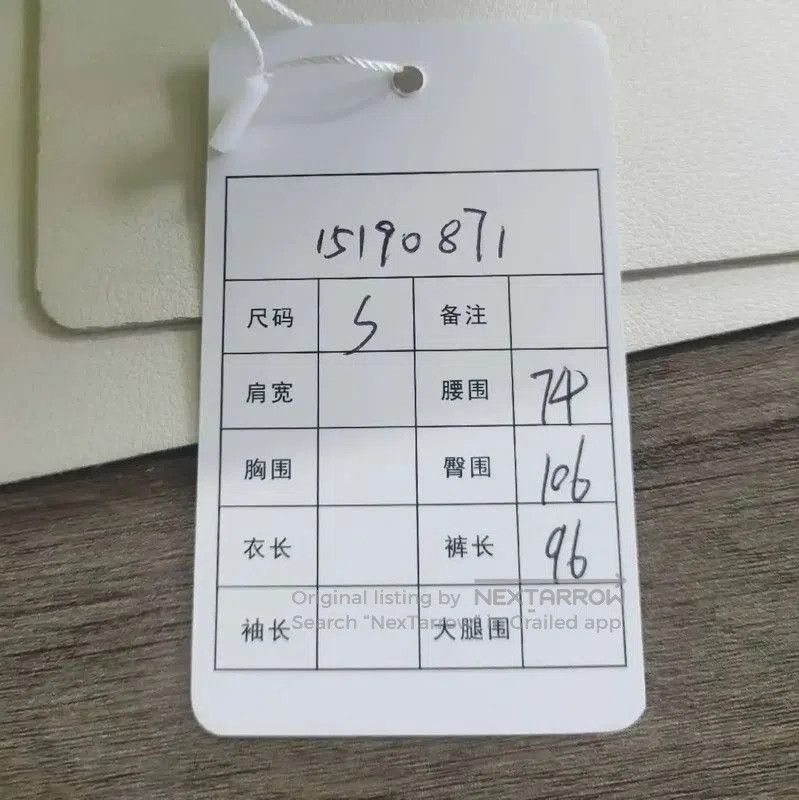 15190871
尺码 S 备注
肩宽 腰围 74
胸围 臀围 106
衣长 裤长 96
Original listing by NEXTARROW
Search "NexTarrow" in Grailed app
袖长 大腿围